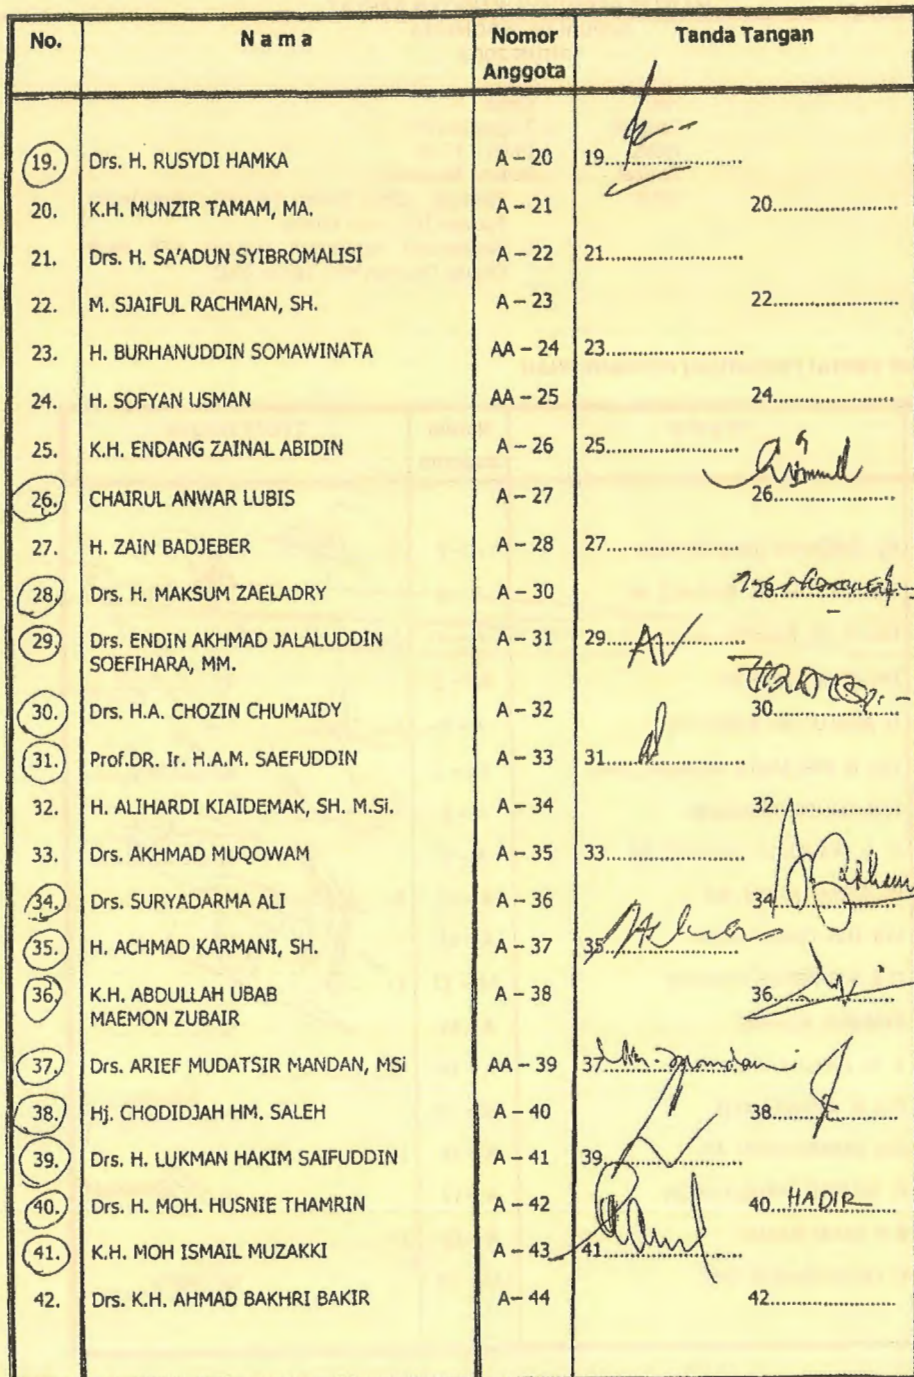 No. N a m a Nomor Anggota Tanda Tangan
19. Drs. H. RUSYDI HAMKA A – 20 19........................
20. K.H. MUNZIR TAMAM, MA. A – 21 20......................
21. Drs. H. SA'ADUN SYIBROMALISI A – 22 21........................
22. M. SJAIFUL RACHMAN, SH. A – 23 22......................
23. H. BURHANUDDIN SOMAWINATA AA – 24 23........................
24. H. SOFYAN USMAN AA – 25 24......................
25. K.H. ENDANG ZAINAL ABIDIN A – 26 25........................
26. CHAIRUL ANWAR LUBIS A – 27 26......................
27. H. ZAIN BADJEBER A – 28 27........................
28. Drs. H. MAKSUM ZAELADRY A – 30 28......................
29. Drs. ENDIN AKHMAD JALALUDDIN A – 31 29........................
SOEFIHARA, MM.
30. Drs. H.A. CHOZIN CHUMAIDY A – 32 30......................
31. Prof.DR. Ir. H.A.M. SAEFUDDIN A – 33 31........................
32. H. ALIHARDI KIAIDEMAK, SH. M.Si. A – 34 32......................
33. Drs. AKHMAD MUQOWAM A – 35 33........................
34. Drs. SURYADARMA ALI A – 36 34......................
35. H. ACHMAD KARMANI, SH. A – 37 35........................
36. K.H. ABDULLAH UBAB A – 38 36......................
MAEMON ZUBAIR
37. Drs. ARIEF MUDATSIR MANDAN, MSi AA – 39 37........................
38. Hj. CHODIDJAH HM. SALEH A – 40 38......................
39. Drs. H. LUKMAN HAKIM SAIFUDDIN A – 41 39........................
40. Drs. H. MOH. HUSNIE THAMRIN A – 42 40. HADIR
41. K.H. MOH ISMAIL MUZAKKI A – 43 41........................
42. Drs. K.H. AHMAD BAKHRI BAKIR A– 44 42......................